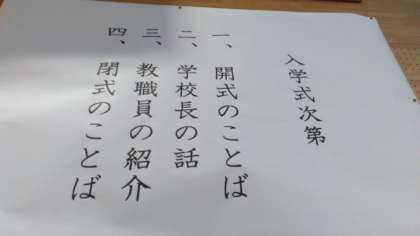 入学式次第
一、開式のことば
二、学校長の話
三、教職員の紹介
四、閉式のことば